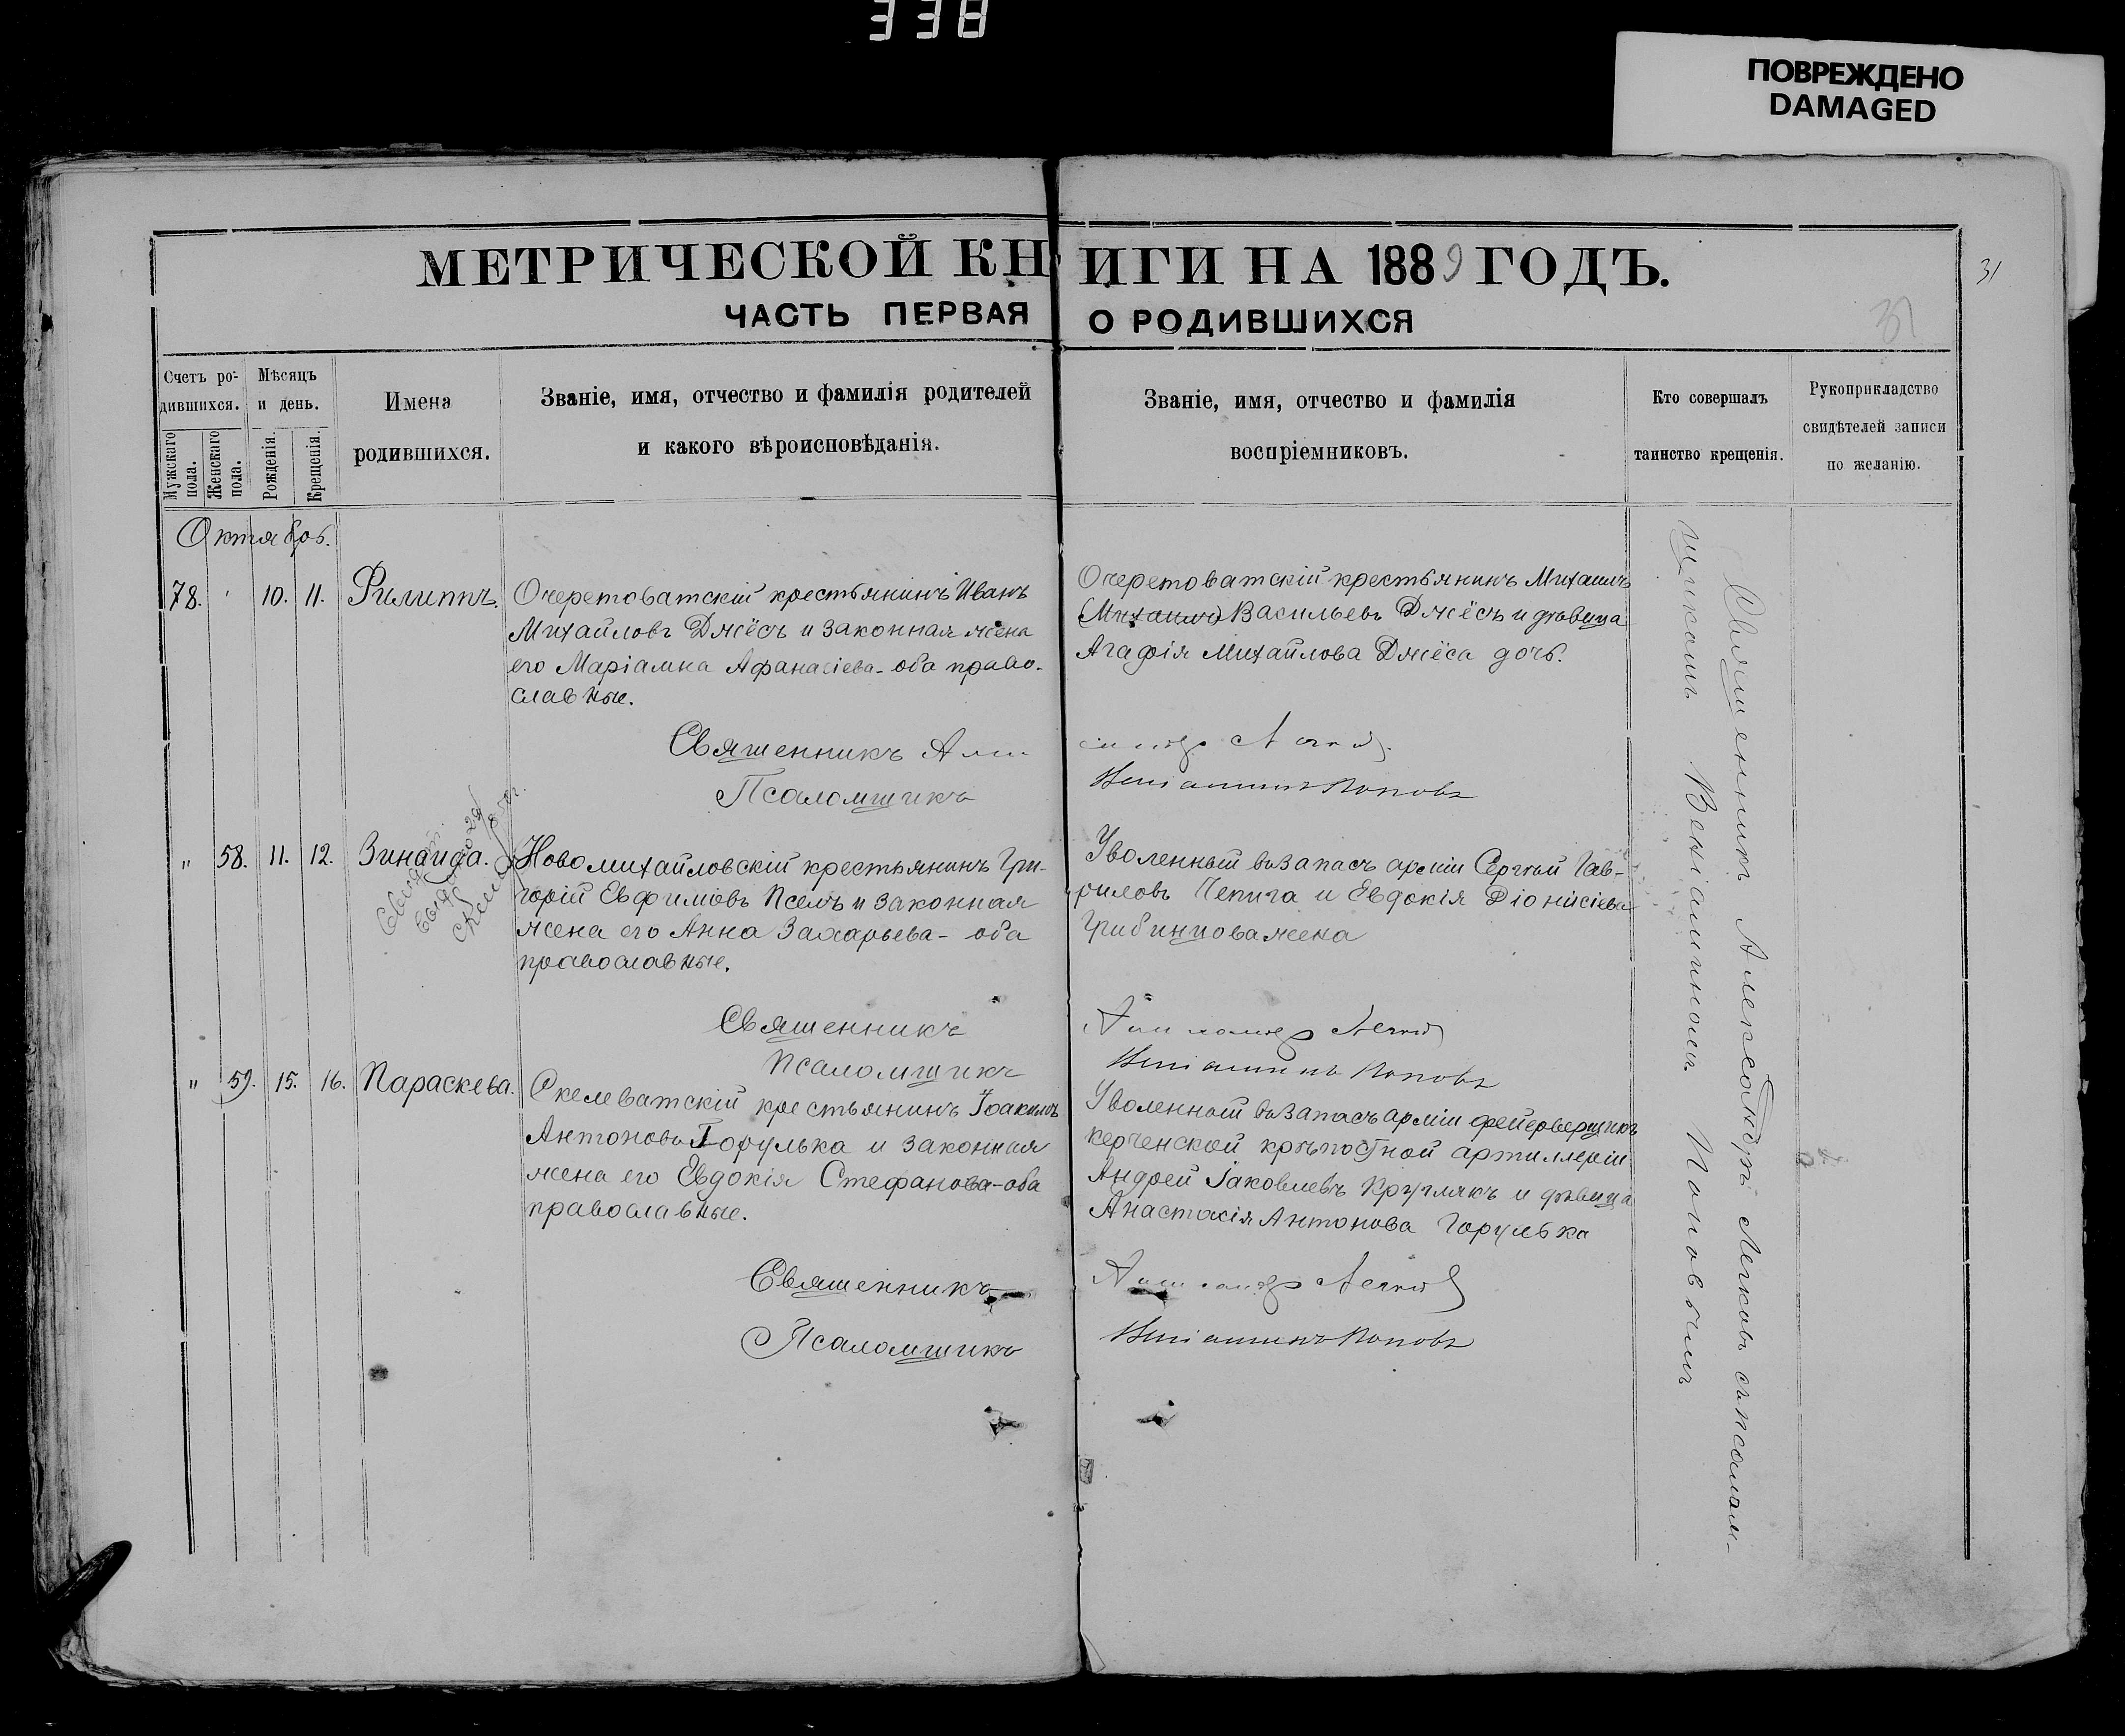 338
ПОВРЕЖДЕНО
DAMAGED
МЕТРИЧЕСКОЙ КНИГИ НА 1889 ГОДЪ.
31
ЧАСТЬ ПЕРВАЯ О РОДИВШИХСЯ
31
Счетъ родившихся.
Мужскаго пола.
Женскаго пола.
Мѣсяцъ и день.
Рожденія.
Крещенія.
Имена
родившихся.
Званіе, имя, отчество и фамилія родителей
и какого вѣроисповѣданія.
Званіе, имя, отчество и фамилія
воспріемниковъ.
Кто совершалъ
таинство крещенія.
Рукоприкладство
свидѣтелей записи
по желанію.
Октябрь.
78. 10. 11. Филиппъ.
Очеретоватскій крестьянинъ Иванъ
Михайловъ Джёсъ и законная жена
его Маріамна Афанасіева - оба право-
славные.
Очеретоватскій крестьянинъ Михаилъ
(Михаилъ) Васильевъ Джёсъ и дѣвица
Агафія Михайлова Джёса дочь.
Священникъ
Псаломщикъ
Веніаминъ Поповъ
" 58. 11. 12. Зинаида.
Новомихайловскій крестьянинъ Гри-
горій Евфиміевъ Пселъ и законная
жена его Анна Захарьева - оба
православные.
Уволенный въ запасъ арміи Сергѣй Гав-
риловъ Чепига и Евдокія Діонисіева
Грибинцова жена
Священникъ
Псаломщикъ
Веніаминъ Поповъ
" 59. 15. 16. Параскева.
Скелеватскій крестьянинъ Іоакимъ
Антоновъ Горулька и законная
жена его Евдокія Стефанова - оба
православные.
Уволенный въ запасъ арміи фейерверщикъ
керченской крѣпостной артиллеріи
Андрей Іаковлевъ Круглякъ и дѣвица
Анастасія Антонова Горулька
Священникъ
Псаломщикъ
Веніаминъ Поповъ
Священникъ Александръ Легковъ съ псалом-
щикомъ Веніаминомъ Поповымъ